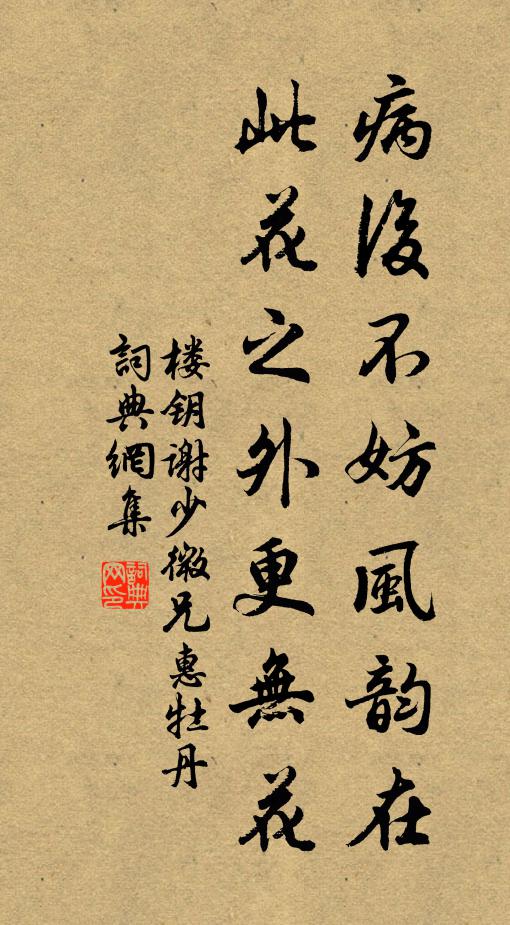 病後不妨風韵在
此花之外更無花
楼钥谢少微兄惠牡丹
詞典網集
詞典網印